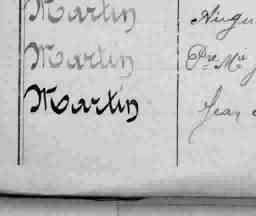 Martin
Martin Pre Mie
Martin Jean